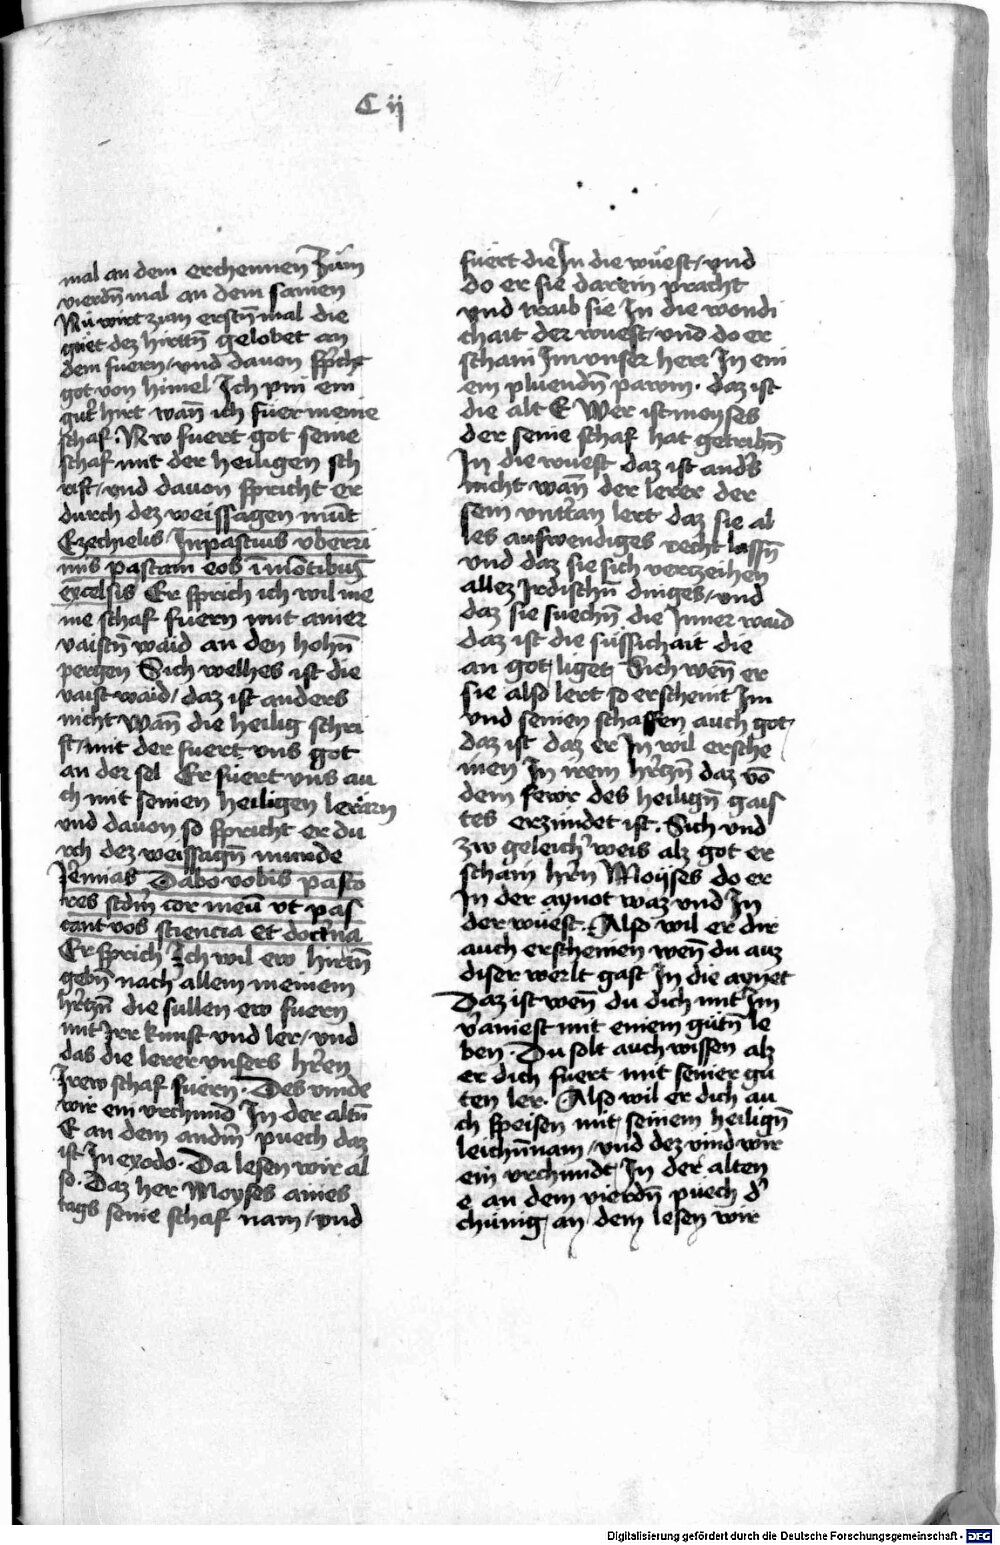 C ij
mal an dem erchennen Zum
vierdn̄ mal an dem samen
Nu wirt zum erstn̄ mal die
guet dez hirttn̄ gelobet an
dem fuern / und davon spricht
got von himel Ich pin ein
gut' hirt wan̄ ich fuer meine
schaf . Nw fuert got seine
schaf mit der heiligen sch
rift / und davon spricht er
durch dez weissagen mūt
Ezechielis / In pascuis uberri
mis pascam eos ī mōtibus
excelsis Er sprich ich wil me
ine schaf fuern mit ainer
vaistn̄ waid an den hohn̄
pergen Sich welhes ist die
vaist waid / daz ist anders
nicht wan̄ die heilig schri
ft / mit der fuert uns got
an der sel Er fuert uns au
ch mit seinen heiligen lerärn
und davon so spricht er du
rch dez weissagn̄ munde
Jeremias Dabo vobis pasto
res scdm̄ cor meū ut pas
cant vos sciencia et doct'na
Er sprich Ich wil ew hirtn̄
gebn̄ nach allem meinem
h'rtzn̄ die sullen ew fuern
mit Irr kunst und ler / und
das die lerer unsers h'ren
Irew schaf fuern . Des vinde
wir ein urchund In der altn̄
E an dem andm̄ puech daz
ist In exodo . Da lesen wir al
so . Daz her Moyses aines
tags seine schaf nam / und
fuert die In die wüest / und
do er sie darein pracht
und traib sie In die wondi
chait der wuest / und do er
schain Im unser herr In ein
em pluendn̄ pawm . daz ist
die alt E Wer ist moyses
der seine schaf hat getribn̄
In die wuest daz ist and's
nicht wan̄ der lerer der
sein untt'an lert daz sie al
les aufwendiges recht lassn̄
und daz sie sich verczeihen
allez Irdischn̄ dinges / und
daz sie suechn̄ die Inner waid
daz ist die süssichait die
an got liget Sich wen̄ er
sie also lert so erscheint Im
und seinen schaffen auch got
daz ist daz er In wil ersche
inen In irem h'rtzn̄ daz vō
dem fewr des heilign̄ gais
tes erzundet ist . Sich und
zw geleich' weis alz got er
schain h'rn Moyses do er
In der aynot waz und In
der wüest . Also wil er dir
auch erscheinen wen̄ du auz
diser werlt gast In die aynet
Daz ist wen̄ du dich mit Im
v'ainest mit einem gutn̄ le
ben . Du solt auch wissen alz
er dich fuert mit seiner gu
ten ler . Also wil er dich au
ch speisen mit seinem heilign̄
leichn̄nam / und dez vind wir
ein urchundt In der alten
e an dem vierdn̄ puech d'
chünig an dem lesen wir
Digitalisierung gefördert durch die Deutsche Forschungsgemeinschaft - DFG